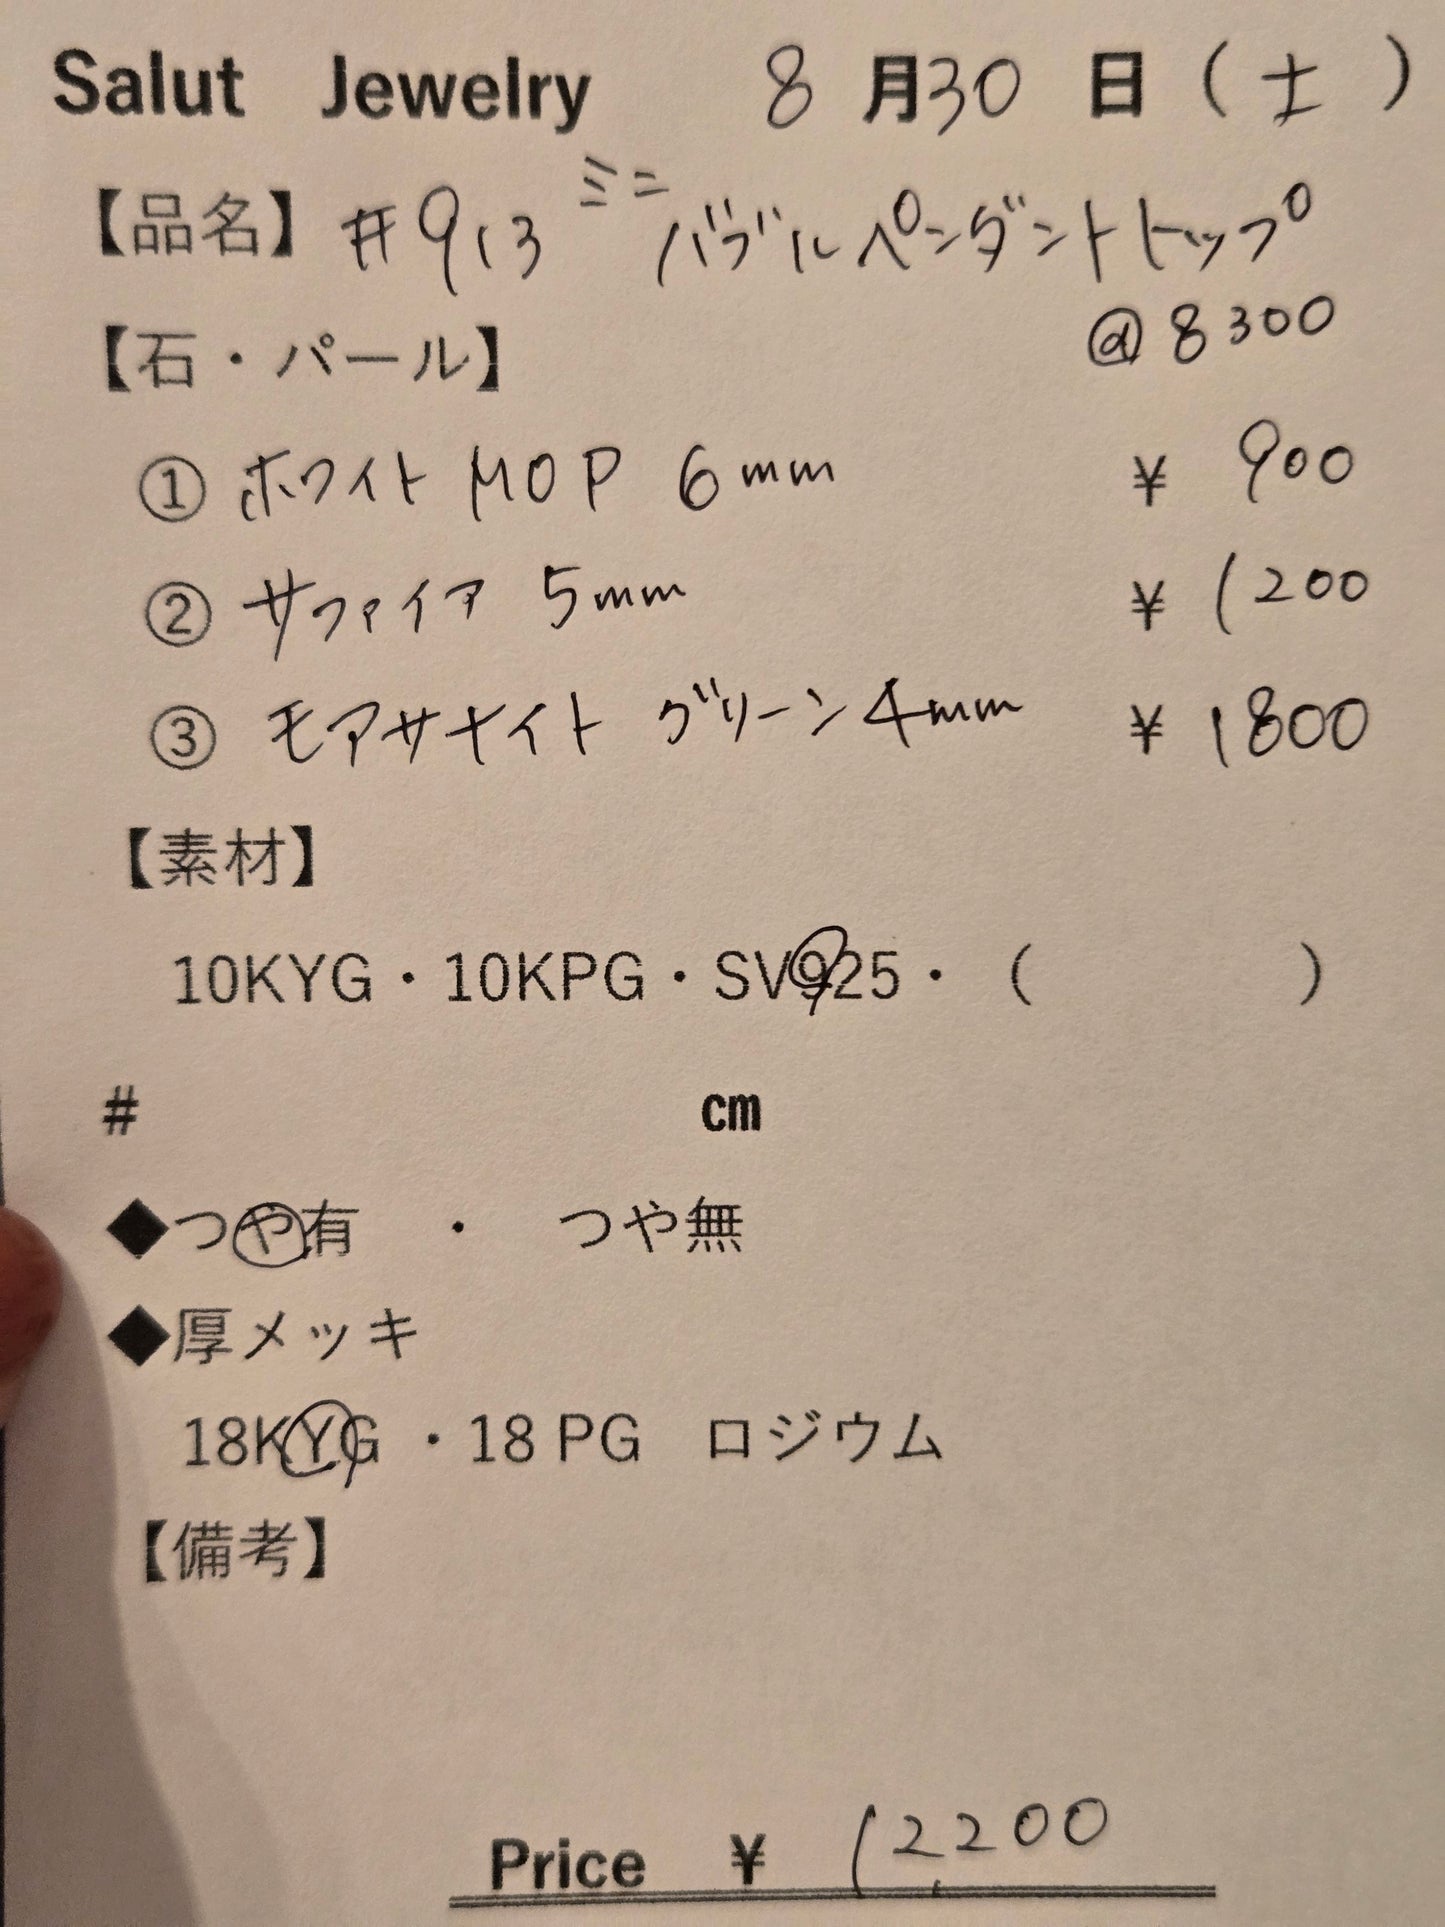 Salut Jewelry 8月30日(土)
【品名】#913 ミニバブルペンダントトップ
@8300
【石・パール】
① ホワイトMOP 6mm ¥ 900
② サファイア 5mm ¥ 1200
③ モアサナイト グリーン4mm ¥ 1800
【素材】
10KYG・10KPG・SV925・( )
# cm
◆つや有 ・ つや無
◆厚メッキ
18KYG ・18 PG ロジウム
【備考】
Price ¥ 12,200